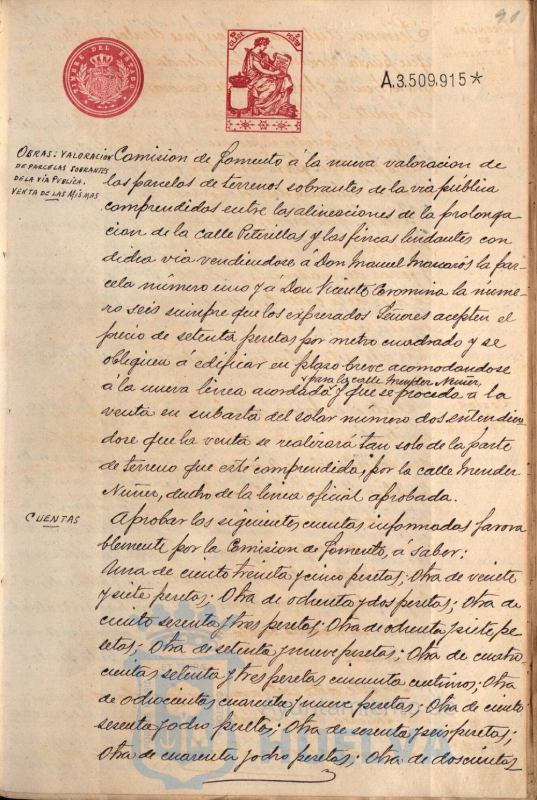 91
TIMBRE DEL ESTADO
A.3.509.915*
OBRAS: VALORACION
DE PARCELAS SOBRANTES
DE LA VÍA PUBLICA.
VENTA DE LAS MISMAS
Comision de Fomento á la nueva valoracion de
las parcelas de terrenos sobrantes de la via pública
comprendidas entre las alineaciones de la prolonga
cion de la calle Puterillas y las fincas lindantes con
dicha via vendiendose á Don Manuel Mascarós la par-
cela número uno y á Don Vicente Coromina la núme-
ro seis siempre que los expresados Señores acepten el
precio de setenta pesetas por metro cuadrado y se
obliguen á edificar en plazo breve acomodandose
para la calle Mendez Nuñez
á la nueva linea acordada y que se proceda á la
venta en subasta del solar número dos entendien
dose que la venta se realizará tan solo de la parte
de terreno que esté comprendida, por la calle Mendez
Nuñez, dentro de la linea oficial aprobada.
CUENTAS
Aprobar las siguientes cuentas informadas favora
blemente por la Comision de Fomento, á saber:
Una de ciento treinta y cinco pesetas; Otra de veinte
y siete pesetas; Otra de ochenta y dos pesetas; Otra de
ciento sesenta y tres pesetas; Otra de ochenta y siete pe
setas; Otra de setenta y nueve pesetas; Otra de cuatro
cientas setenta y tres pesetas cincuenta centimos; Otra
de ochocientas cuarenta y nueve pesetas; Otra de ciento
sesenta y ocho pesetas; Otra de sesenta y seis pesetas;
Otra de cuarenta y ocho pesetas; Otra de doscientas
HUELVA